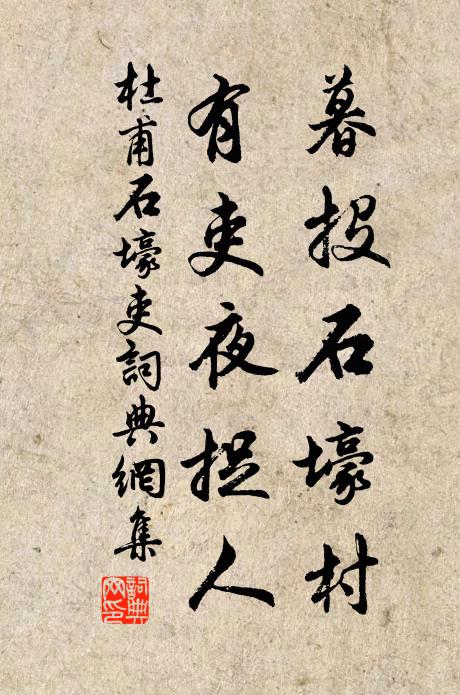 暮投石壕村
有吏夜捉人
杜甫石壕吏詞典網集
詞典網印